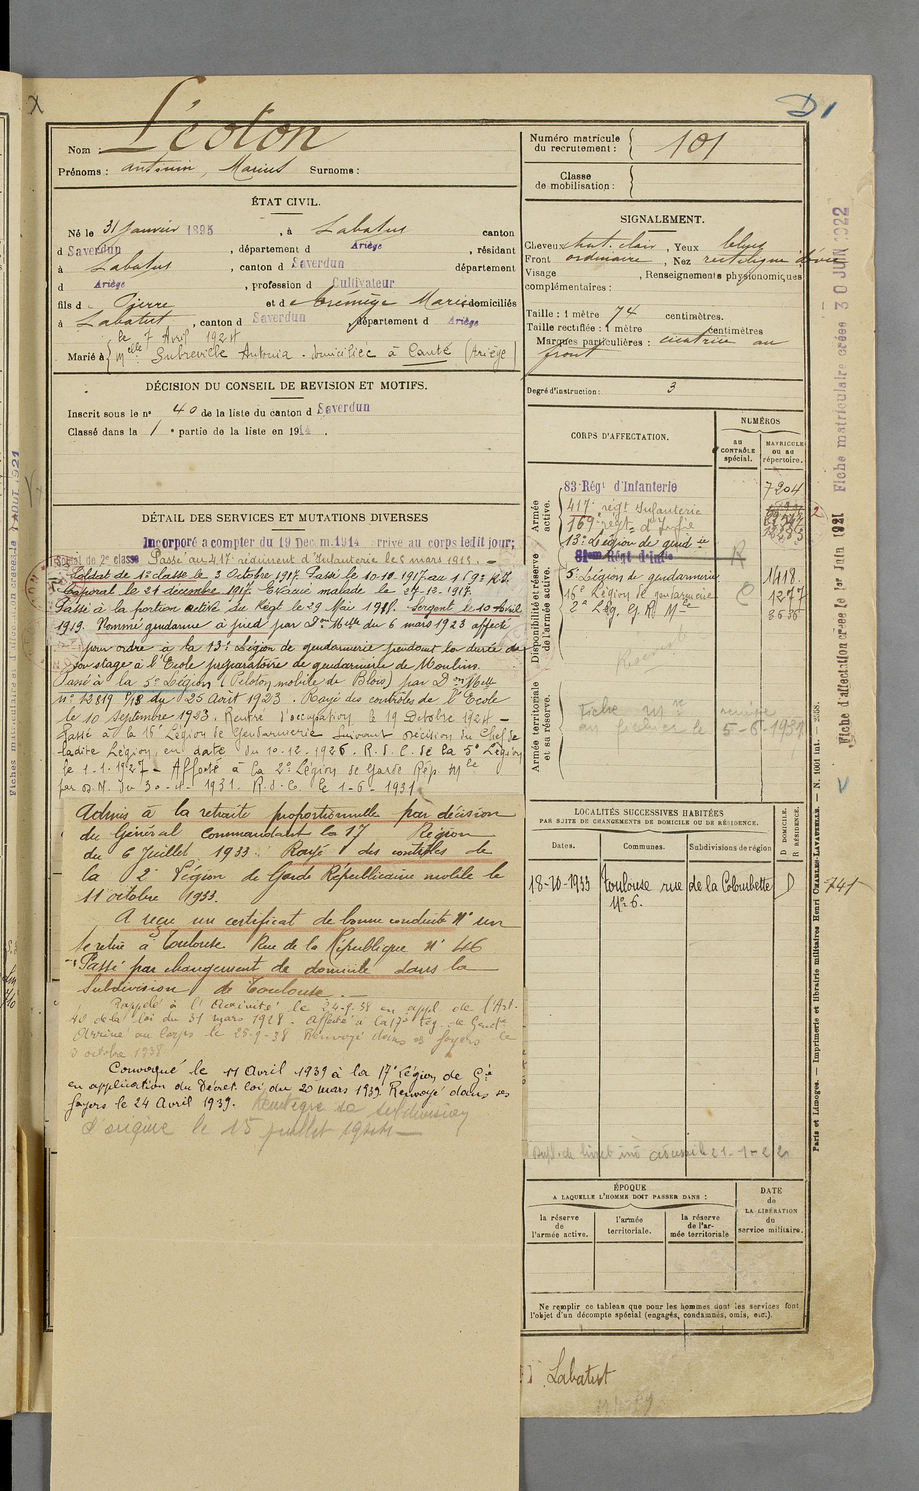 D1
Nom : Léoton
Prénoms : Antonin, Marius Surnoms :
ÉTAT CIVIL.
Né le 31 Janvier 1895, à Labatut canton
d Saverdun, département d Ariège, résidant
à Labatut, canton d Saverdun département
d Ariège, profession d Cultivateur
fils d e Pierre et d e Marie domiciliés
à Labatut, canton d Saverdun, département d Ariège
le 7 Avril 1924
Marié à Melle Antonia. domiciliée à Canté (Ariège)
DÉCISION DU CONSEIL DE REVISION ET MOTIFS.
Inscrit sous le n° 40 de la liste du canton d Saverdun
Classé dans la 1e partie de la liste en 1914.
DÉTAIL DES SERVICES ET MUTATIONS DIVERSES
Incorporé a compter du 19 Décem. 1914 arrivé au corps ledit jour;
Soldat de 2e classe Passé au 417e régiment d'Infanterie le 6 mars 1915. —
Soldat de 1e classe le 3 Octobre 1917. Passé le 10-10-1917 au 169e R.I.
Caporal le 21 décembre 1917. Evacué malade le 27-12-1917.
Passé à la portion active du Régt le 29 Mai 1918. Sergent le 10 Avril
1919. Nommé gendarme à pied par Don Melle du 6 mars 1923 affecté
pour ordre à la 13e Légion de gendarmerie pendant la durée de
son stage à l'Ecole préparatoire de gendarmerie de Moulins.
Passé à la 5e Légion (Peloton mobile de Blois) par Don Melle
n° 42819 1/13 du 25 Août 1923. Rayé des contrôles de l'Ecole
le 10 Septembre 1923. Rentré d'occupation le 19 Octobre 1924 —
Passé à la 16e Légion de Gendarmerie suivant décision du Chef de
ladite Légion, en date du 10-12-1926. R.d.C. de la 5e Légion
le 1-1-1927 — Affecté à la 2e Légion de Garde Rép. Mle
par D.M. du 30-4-1931. R.d.C. le 1-6-1931
Admis à la retraite proportionnelle par décision
du Général Commandant la 17e Région
du 6 Juillet 1933. Rayé des contrôles de
la 2e Légion de Garde Républicaine mobile le
11 octobre 1933.
A reçu un certificat de bonne conduite N° un
Se retire à Toulouse Rue de la République n° 46
Passé par changement de domicile dans la
Subdivision de Toulouse
Rappelé à l'Activité le 24-9-38 en appl. de l'Art.
40 de la loi du 31 mars 1928. Affecté à la 17e Lég. de Gendie
Arrivé au Corps le 25-9-38 Renvoyé dans ses foyers le
octobre 1938
Convoqué le 11 Avril 1939 à la 17e Légion de Gie
en application du Décret loi du 20 mars 1939 Renvoyé dans ses
foyers le 24 Avril 1939. Réintègre sa subdivision
d'origine le 15 juillet
Numéro matricule du recrutement : 101
Classe de mobilisation :
SIGNALEMENT.
Cheveux chat. clair, Yeux bleus
Front ordinaire, Nez rectiligne dévié
Visage , Renseignements physionomiques
complémentaires :
Taille : 1 mètre 74 centimètres.
Taille rectifiée : 1 mètre centimètres
Marques particulières : cicatrice au
front
Degré d'instruction : 3
CORPS D'AFFECTATION.
NUMÉROS
AU CONTRÔLE spécial.
MATRICULE ou au répertoire.
Armée active.
83e Régt d'Infanterie 7204
417e régt Infanterie
169e régt d'Infie
13e Légion de gendie
Disponibilité et réserve de l'armée active.
81eme Régt d'Infie
5e Légion de gendarmerie 1418
16e Légion de gendarmerie 1277
2e Lég. G. R. Mle 8636
Armée territoriale et sa réserve.
Fiche remise
au fichier le 5-6-1931
LOCALITÉS SUCCESSIVES HABITÉES
PAR SUITE DE CHANGEMENTS DE DOMICILE OU DE RÉSIDENCE.
D DOMICILE.
R RÉSIDENCE.
Dates. Communes. Subdivisions de région
18-10-1933 Toulouse rue de la Colombette D
N° 6.
741
Dupl. de livret 21-1-22
ÉPOQUE
A LAQUELLE L'HOMME DOIT PASSER DANS :
la réserve de l'armée active.
l'armée territoriale.
la réserve de l'armée territoriale
DATE de LA LIBÉRATION du service militaire.
Ne remplir ce tableau que pour les hommes dont les services font
l'objet d'un décompte spécial (engagés, condamnés, omis, etc.).
Labatut
Fiche matriculaire créée 30 JUIN 1922
Fiche d'affectation créée le 1er Juin 1921
Paris et Limoges. — Imprimerie et librairie militaires Henri CHARLES-LAVAUZELLE. — N. 1001 int. — 2558.